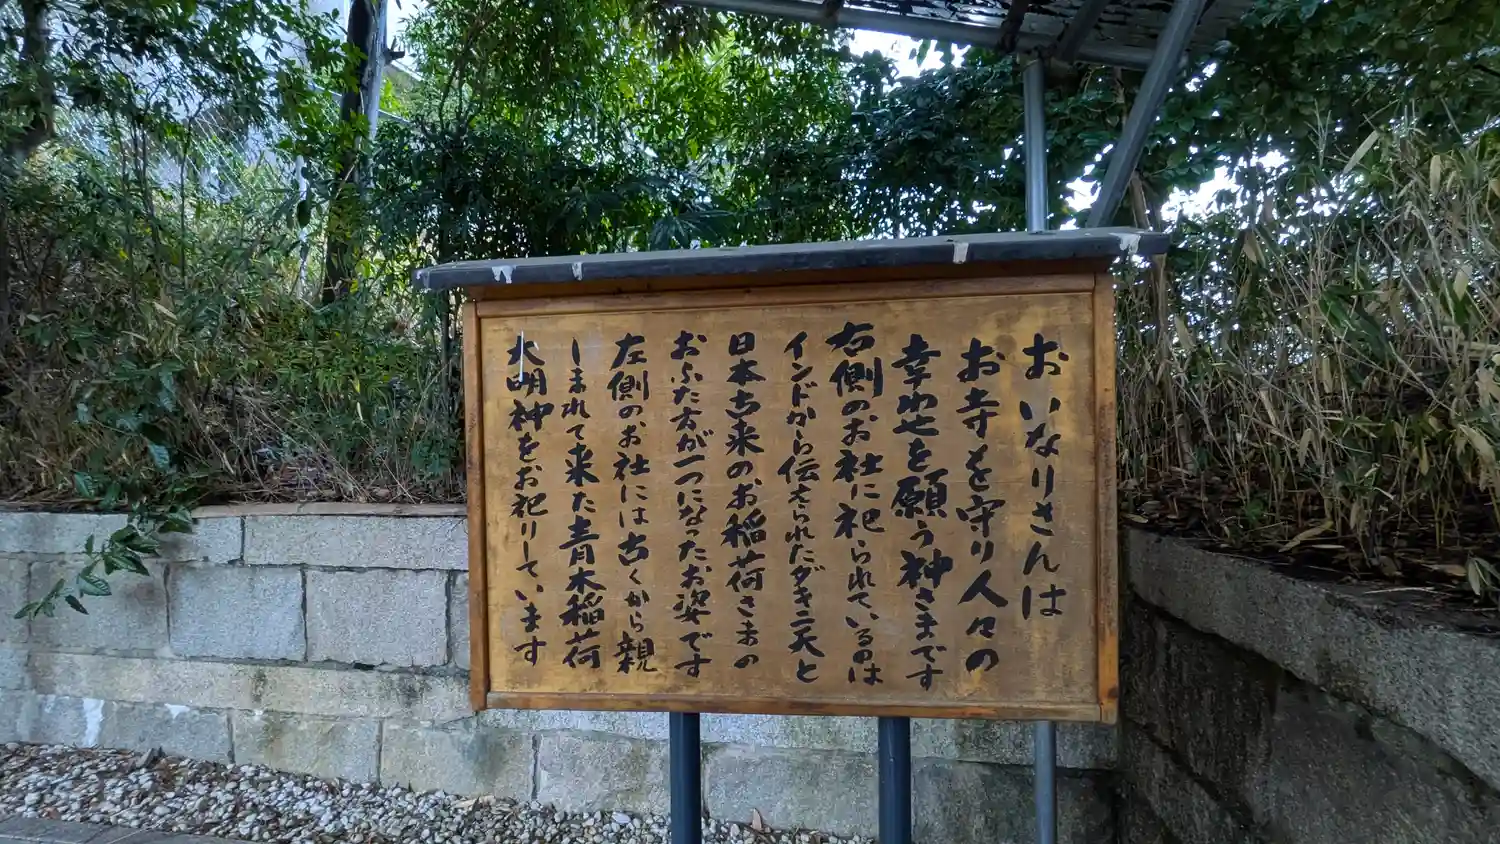 おいなりさんは
お寺を守り人々の
幸わせを願う神さまです
右側のお社に祀られているのは
インドから伝えられたダキニ天と
日本古来のお稲荷さまの
おふた方が一つになったお姿です
左側のお社には古くから親
しまれて来た青木稲荷
大明神をお祀りしています